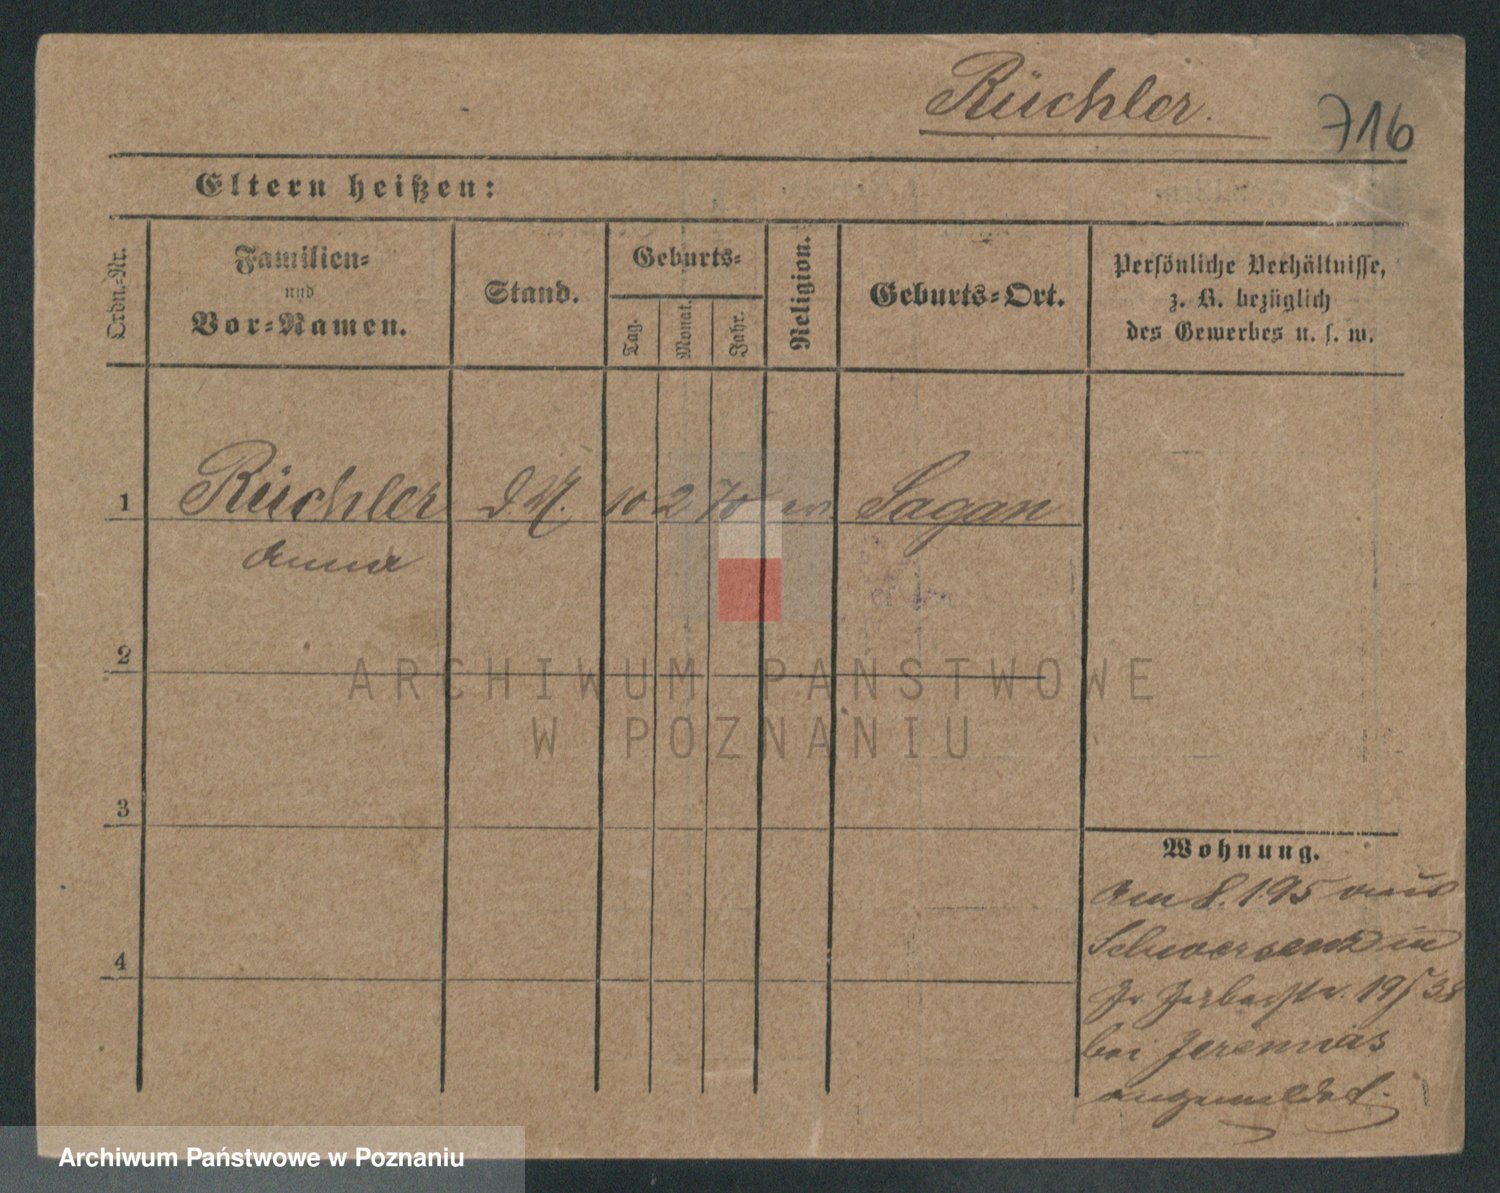 Rüchler.
716
Eltern heißen:
Ordn.-Nr.
Familien-
und
Vor-Namen.
Stand.
Geburts-
Tag.
Monat.
Jahr.
Religion.
Geburts-Ort.
Persönliche Verhältnisse,
z. B. bezüglich
des Gewerbes u. s. w.
1 Rüchler d M. 10 2 70 ev. Sagan
Anna
2
ARCHIWUM PAŃSTWOWE
W POZNANIU
3
Wohnung.
Am 8.1.95 aus
Schwersenz in
19/38
4
bei Jeremias
angemeldet.
Archiwum Państwowe w Poznaniu